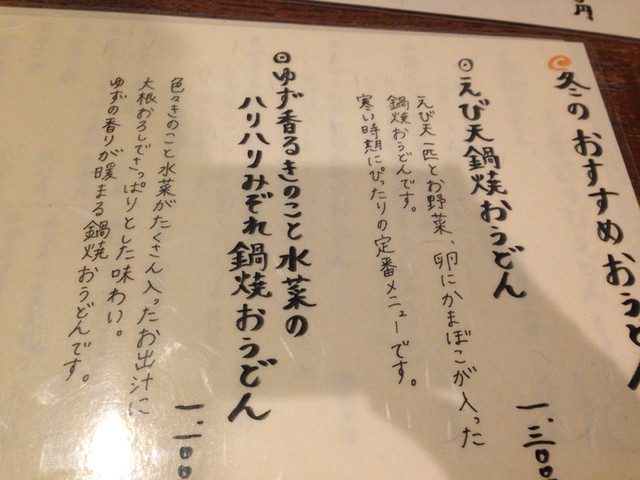 冬のおすすめおうどん
◎えび天鍋焼おうどん
えび天一匹とお野菜、卵にかまぼこが入った
鍋焼おうどんです。
寒い時期にぴったりの定番メニューです。
一、三〇〇
◎ゆず香るきのこと水菜の
ハリハリみぞれ鍋焼おうどん
色々きのこと水菜がたくさん入ったお出汁に
大根おろしでさっぱりとした味わい。
ゆずの香りが暖まる鍋焼おうどんです。
一、一〇〇
円